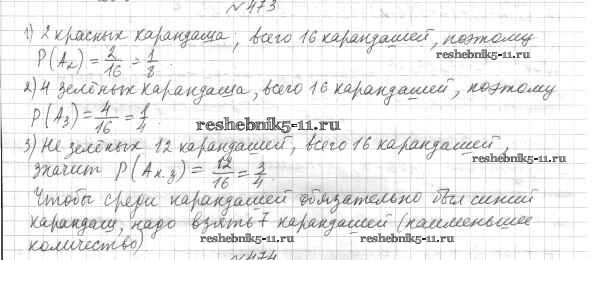 №473
1) 2 красных карандаша, всего 16 карандашей, поэтому
P(Aк) = 2/16 = 1/8.
reshebnik5-11.ru
2) 4 зелёных карандаша, всего 16 карандашей, поэтому
P(Aз) = 4/16 = 1/4.
reshebnik5-11.ru
3) Не зелёных 12 карандашей, всего 16 карандашей,
значит P(Aн.з) = 12/16 = 3/4.
reshebnik5-11.ru
Чтобы среди карандашей обязательно был синий
карандаш, надо взять 7 карандашей (наименьшее
количество)
reshebnik5-11.ru reshebnik5-11.ru
№474